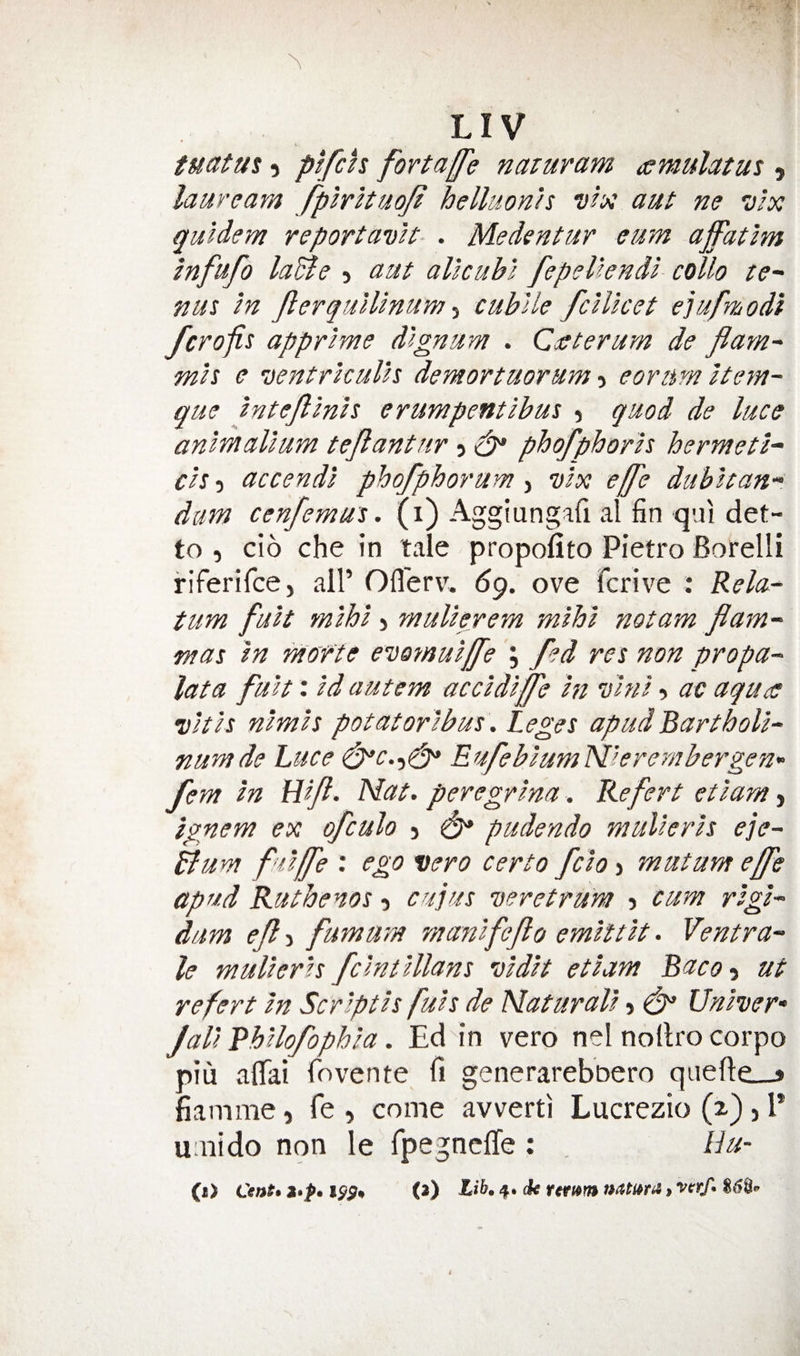 LIV
tuatus, piſcis fortaſſe naturam æmulatus,
lauream ſpirituoſi helluonis vix aut ne vix
quidem reportavit. Medentur eum affatim
infuſo lacte, aut alicubi ſepeliendi collo te-
nus in ſterquilinum, cubile ſcilicet ejuſmodi
ſcrofis apprime dignum. Cæterum de flam-
mis e ventriculis demortuorum, eorum item-
que inteſtinis erumpentibus, quod de luce
animalium teſtantur, & phoſphoris hermeti-
cis, accendi phoſphorum, vix eſſe dubitan-
dum cenſemus. (1) Aggiungaſi al fin quì det-
to, ciò che in tale propoſito Pietro Borelli
riferiſce, all' Oſſerv. 69. ove ſcrive : Rela-
tum fuit mihi, mulierem mihi notam flam-
mas in morte evomuiſſe ; ſed res non propa-
lata fuit : id autem accidiſſe in vini, ac aquæ
vitis nimis potatoribus. Leges apud Bartholi-
num de Luce &c.,& Euſebium Nierembergen-
ſem in Hiſt. Nat. peregrina. Refert etiam,
ignem ex oſculo, & pudendo mulieris eje-
ctum fuiſſe : ego vero certo ſcio, mutum eſſe
apud Ruthenos, cujus veretrum, cum rigi-
dum eſt, fumum manifeſto emittit. Ventra-
le mulieris ſcintillans vidit etiam Baco, ut
refert in Scriptis ſuis de Naturali, & Univer-
ſali Philoſophia. Ed in vero nel noſtro corpo
più aſſai fovente ſi generarebbero queſte
fiamme, ſe, come avvertì Lucrezio (2), l'
umido non le ſpegneſſe : Hu-
(1) Cent. 2. p. 199. (2) Lib. 4. de rerum natura, verſ. 868.